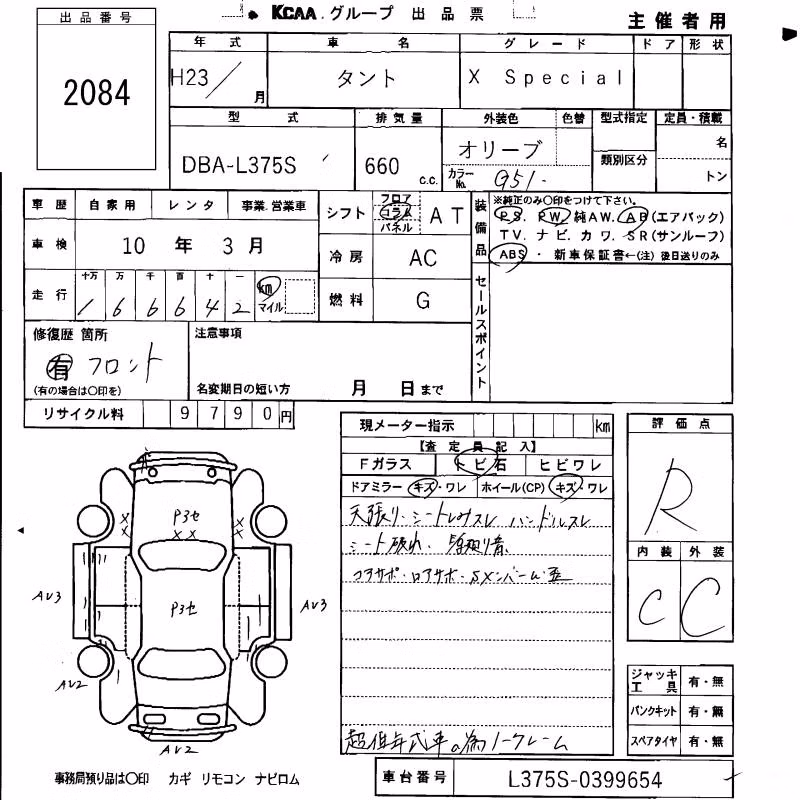 KCAA グループ 出品票
主催者用
出品番号
2084
年式 車名 グレード ドア 形状
H23/ 月 タント X Special
型式 排気量 外装色 色替 型式指定 定員・積載
DBA-L375S 660 c.c. オリーブ 類別区分 名
カラーNo. G51 トン
車歴 自家用 レンタ 事業.営業車
シフト フロア コラム パネル AT
装備品 ※純正のみ〇印をつけて下さい。
P.S. P.W. 純AW. AB(エアバック)
TV. ナビ. カワ. SR(サンルーフ)
ABS ・ 新車保証書←(注) 後日送りのみ
車検 10 年 3 月
冷房 AC
走行 十万 万 千 百 十 一
1 6 6 6 4 2 km マイル
燃料 G
セールスポイント
修復歴 箇所
有 フロント
(有の場合は〇印を)
注意事項
名変期日の短い方 月 日まで
リサイクル料 9 7 9 0 円
現メーター指示 km
【査定員記入】
Fガラス トビ石 ヒビワレ
ドアミラー キズ・ワレ ホイール(CP) キズ・ワレ
天張り、シートしみスレ ハンドルスレ
シート破れ、
コアサポ・ロアサポ・Sメンバーム歪
超低年式車の為ノークレーム
評価点
R
内装 外装
C C
ジャッキ 工具 有・無
パンクキット 有・無
スペアタイヤ 有・無
X X P3セ X X X X
AV3 P3セ AV3
AV2
AV2
事務局預り品は〇印 カギ リモコン ナビロム
車台番号 L375S-0399654